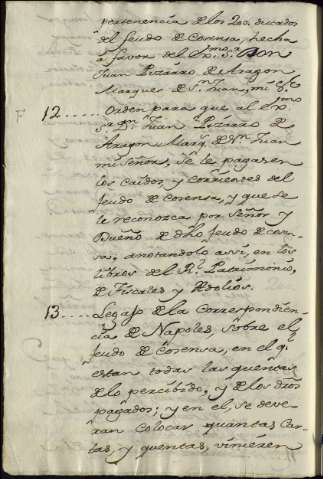 pertenencia de los 200. ducados
del feudo de Corensa, hecha
à favor del Ex.mo S.or Don
Juan Pizarro de Aragon
Marques de S.n Juan, mi S.or
12..... Orden para que al Ex.mo
S.or D.n Juan Pizarro de
Aragon y Marq.s de S.n Juan
mi Señor, se le paguen
los caidos, y corrientes del
feudo de Corensa, y que se
le reconozca por Señor y
Dueño de dho feudo de Coren-
sa, anotandolo assi, en los
libros del R.l Patrimonio,
de Fiscales y
13..... Legajo de la Correspondien-
cia de Napoles, sobre el
feudo de Corensa, en el q.e
estan todas las quentas
de lo percibido, y de los dros
pagados; y en el, se deve-
ran colocar quantas Car-
tas, y quentas, vinieren